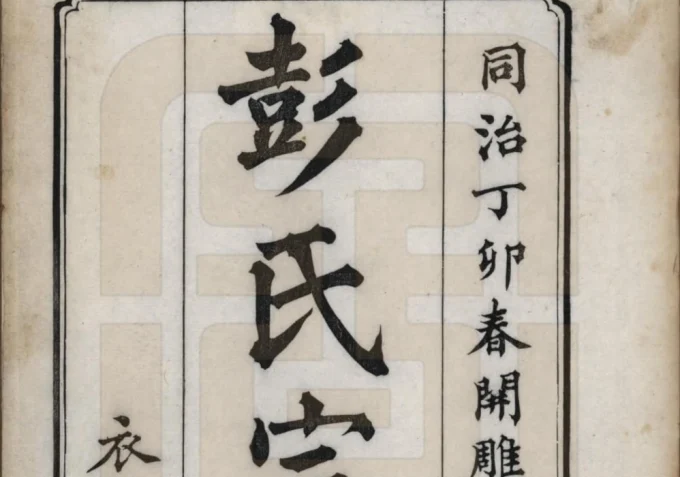 同治丁卯春開雕
彭氏宗
衣